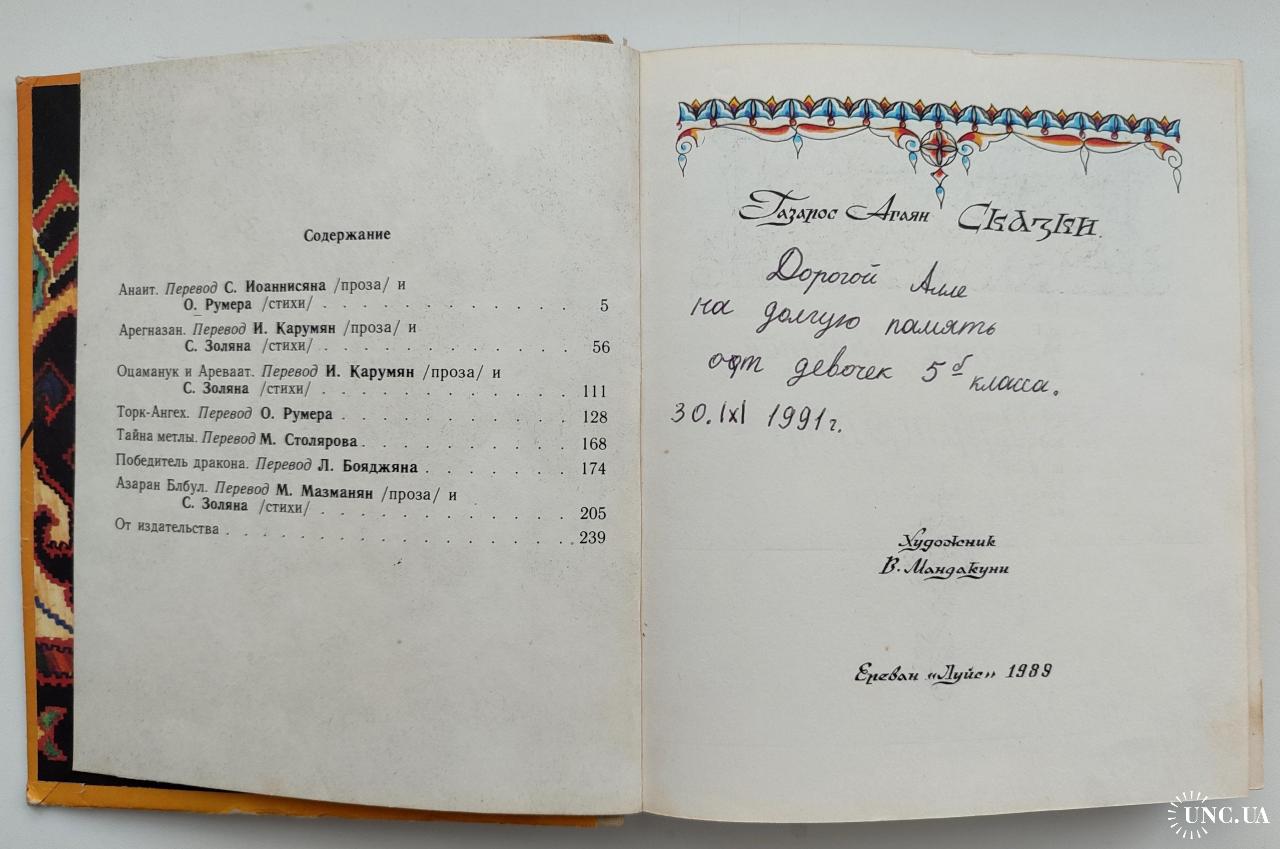 Содержание
Анаит. Перевод С. Иоаннисяна /проза/ и
О. Румера /стихи/ . . . . . . . . . . . 5
Арегназан. Перевод И. Карумян /проза/ и
С. Золяна /стихи/ . . . . . . . . . . . 56
Оцаманук и Ареваат. Перевод И. Карумян /проза/ и
С. Золяна /стихи/ . . . . . . . . . . . 111
Торк-Ангех. Перевод О. Румера . . . . . . . . . . 128
Тайна метлы. Перевод М. Столярова . . . . . . . . . 168
Победитель дракона. Перевод Л. Бояджяна . . . . . . . 174
Азаран Блбул. Перевод М. Мазманян /проза/ и
С. Золяна /стихи/ . . . . . . . . . . . 205
От издательства . . . . . . . . . . . . . . 239
Газарос Агаян Сказки
Дорогой Алле
на долгую память
от девочек 5б класса.
30.IXI 1991г.
Художник
В. Мандакуни
Ереван «Луйс» 1989
UNC.UA